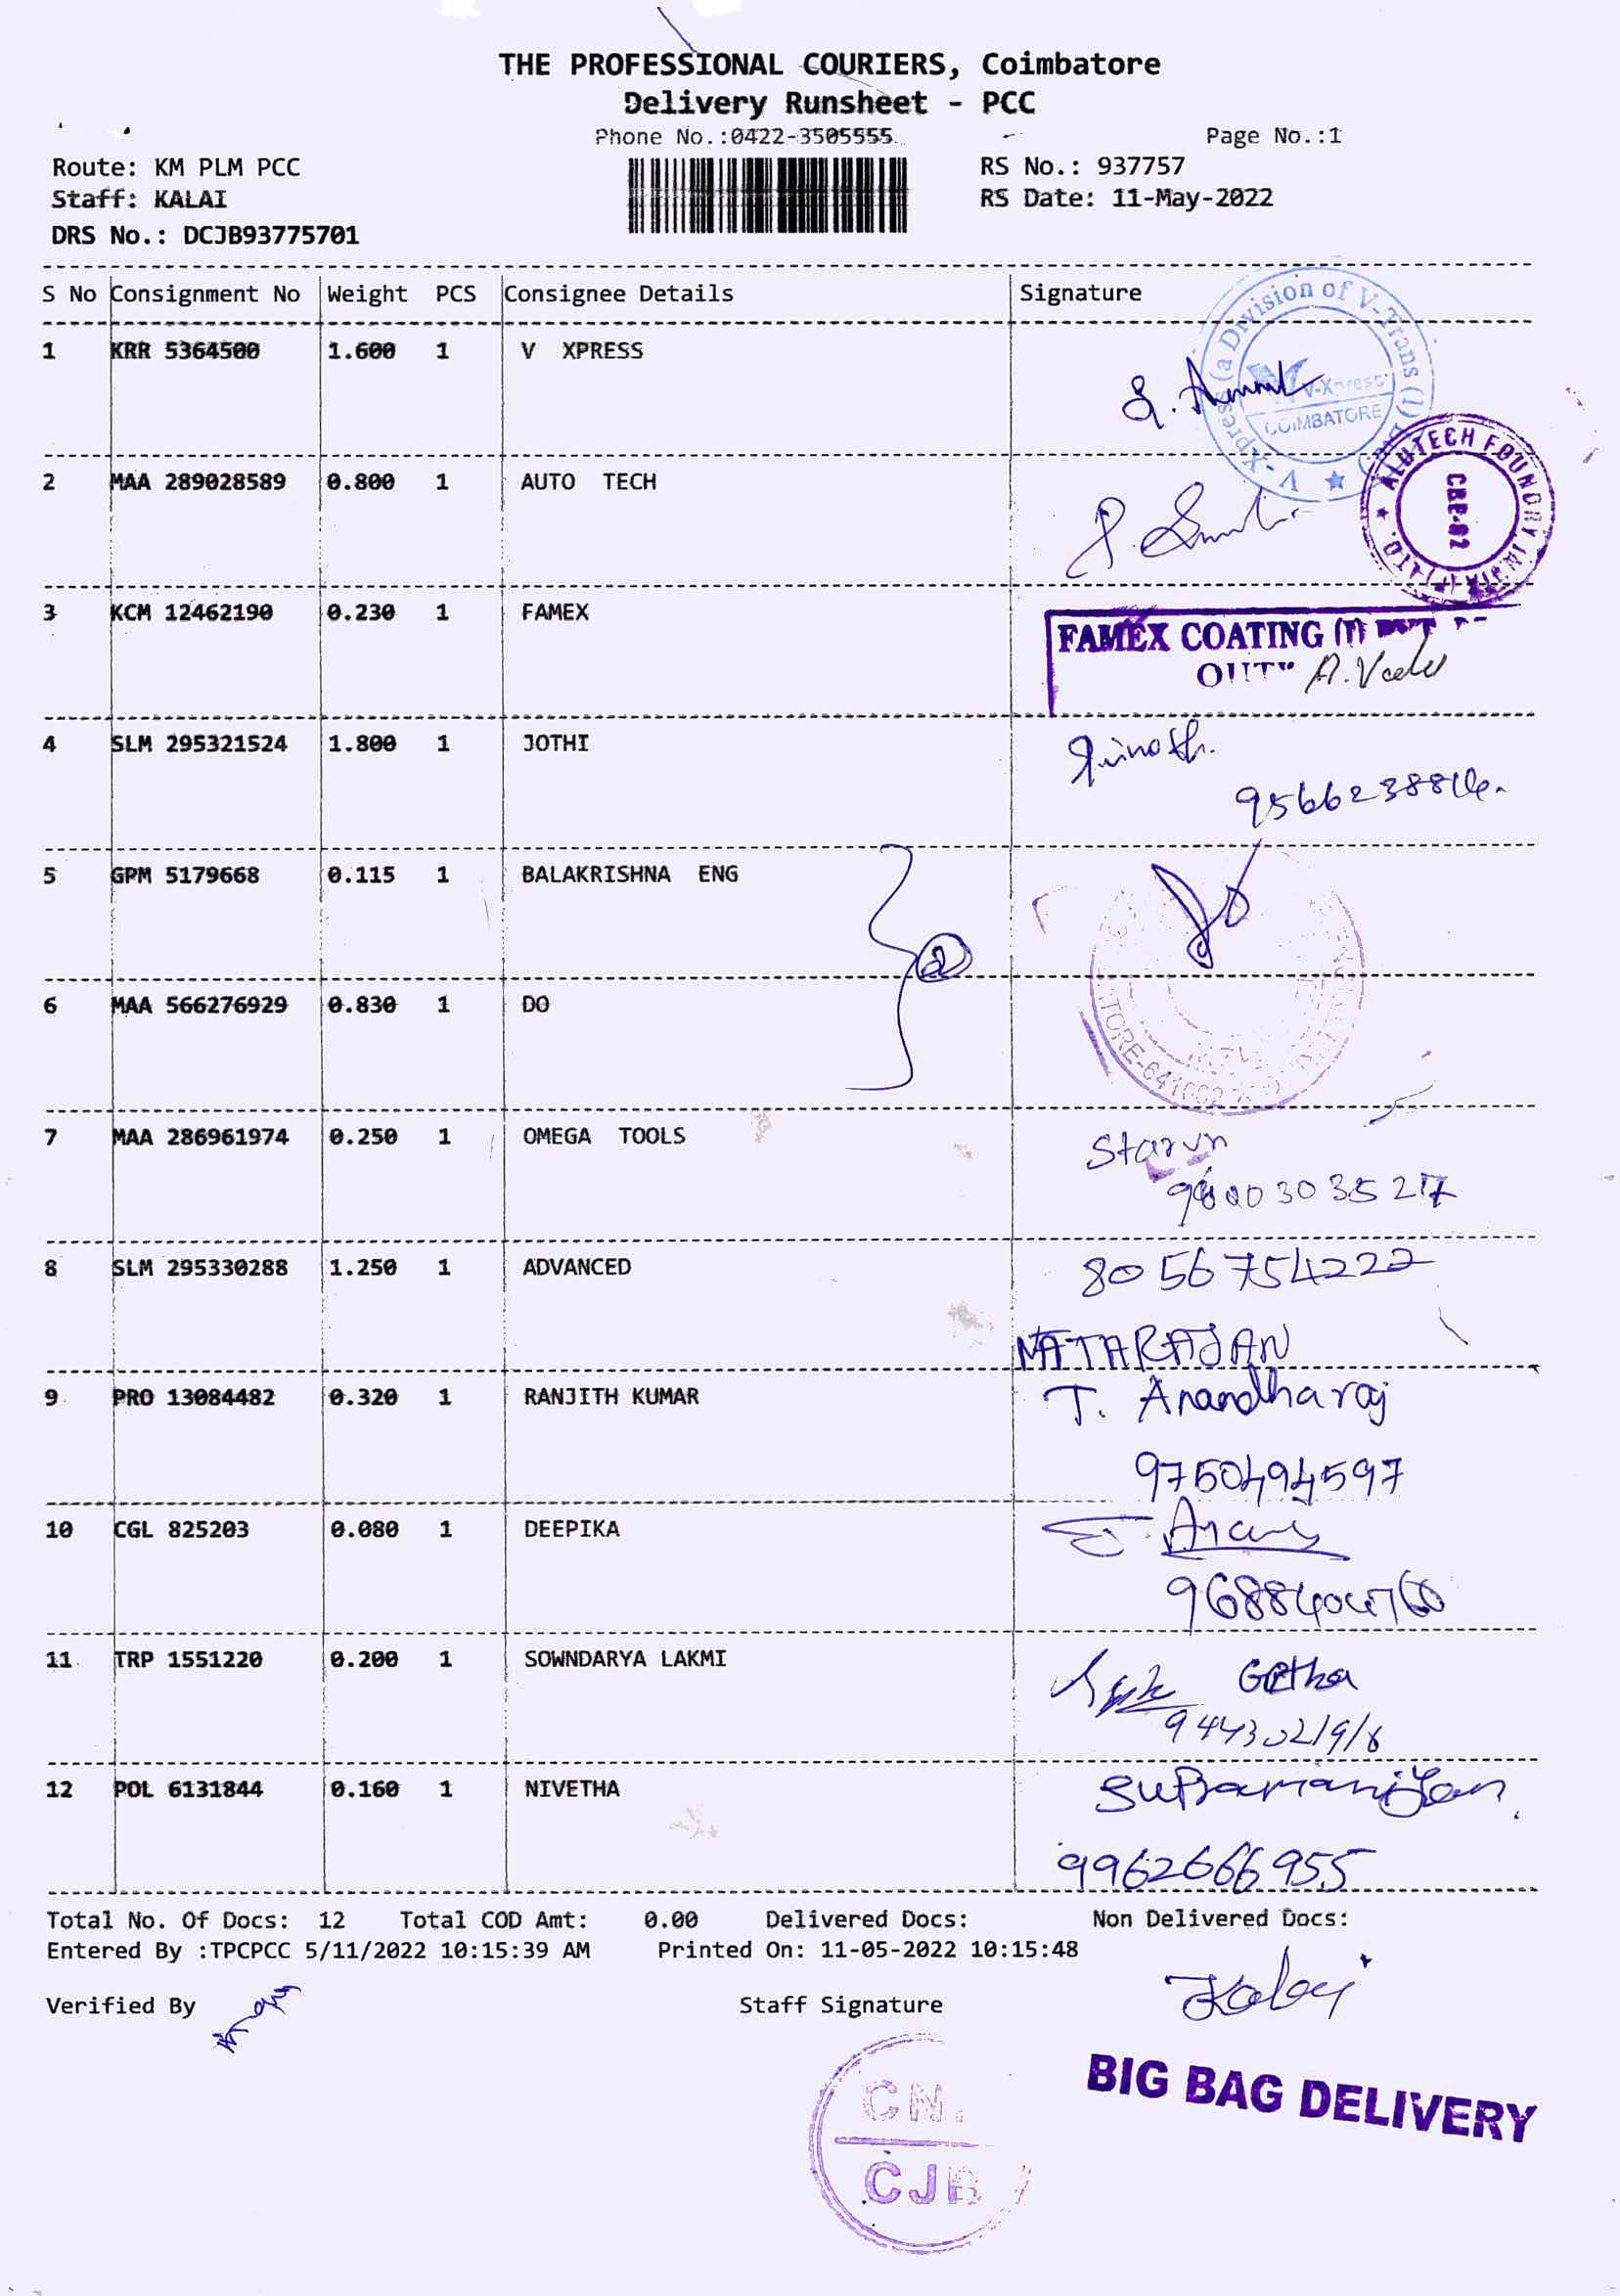 THE PROFESSIONAL COURIERS, Coimbatore
Delivery Runsheet - PCC
Phone No.:0422-3505555
Page No.:1
Route: KM PLM PCC
RS No.: 937757
Staff: KALAI
RS Date: 11-May-2022
DRS No.: DCJB93775701
S No Consignment No Weight PCS Consignee Details Signature
1 KRR 5364500 1.600 1 V XPRESS
V-Xpress (a Division of V-Trans (I)
V-Xpress
COIMBATORE
2 MAA 289028589 0.800 1 AUTO TECH
ALUTECH FOUNDRY
CBE-02
3 KCM 12462190 0.230 1 FAMEX
FAMEX COATING (I)
4 SLM 295321524 1.800 1 JOTHI
5 GPM 5179668 0.115 1 BALAKRISHNA ENG
2
6 MAA 566276929 0.830 1 DO
7 MAA 286961974 0.250 1 OMEGA TOOLS
8 SLM 295330288 1.250 1 ADVANCED
8056754222
NATARAJAN
9 PRO 13084482 0.320 1 RANJITH KUMAR
T. Anandharaj
9750494597
10 CGL 825203 0.080 1 DEEPIKA
11 TRP 1551220 0.200 1 SOWNDARYA LAKMI
12 POL 6131844 0.160 1 NIVETHA
9962666955
Total No. Of Docs: 12 Total COD Amt: 0.00 Delivered Docs: Non Delivered Docs:
Entered By :TPCPCC 5/11/2022 10:15:39 AM Printed On: 11-05-2022 10:15:48
Verified By
Staff Signature
Kalai
CN.
CJB
BIG BAG DELIVERY